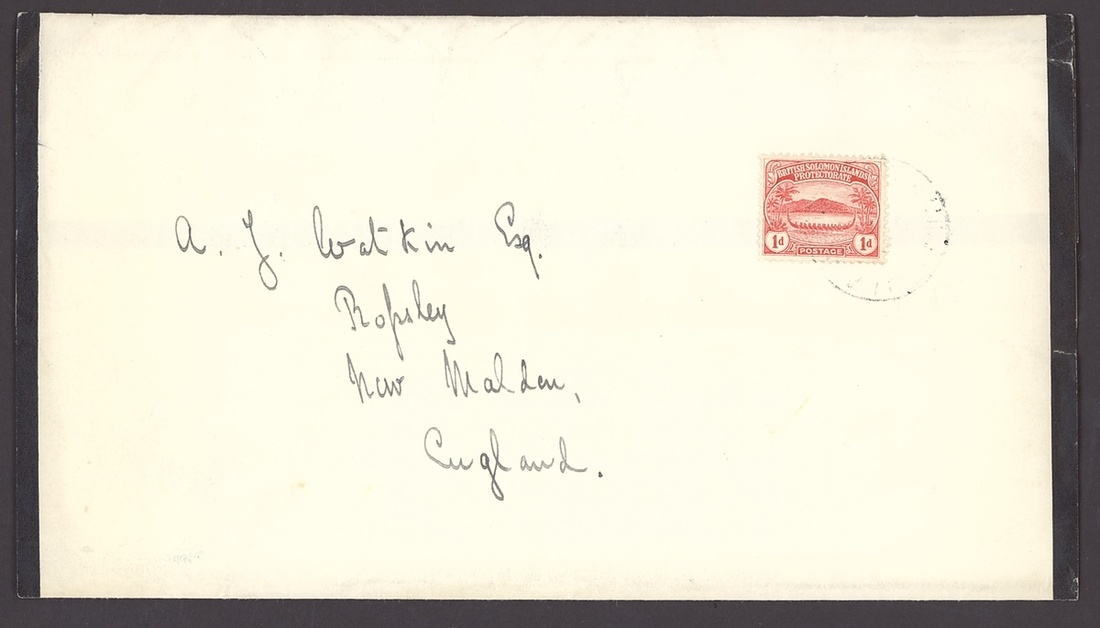 BRITISH SOLOMON ISLANDS
PROTECTORATE
1d POSTAGE 1d
A. J. Watkin Esq.
Ropsley
New Malden,
England.